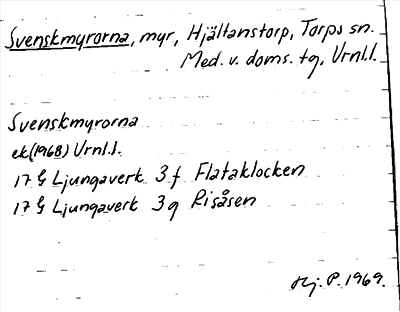 Svenskmyrorna, myr, Hjältanstorp, Torps sn.
Med. v. doms. tg, Vrnl.l.
Svenskmyrorna
ek(1968) Vrnl.l.
17 G Ljungaverk 3f Flataklocken
17 G Ljungaverk 3g Risåsen
Hj. P. 1969.